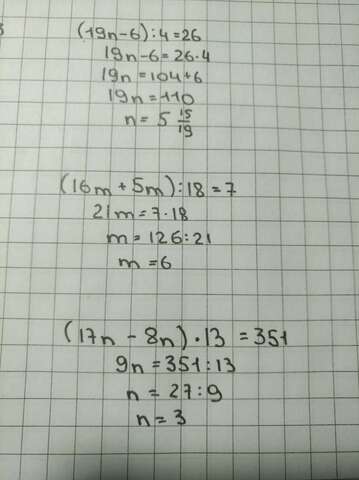 (19n-6):4=26
19n-6=26·4
19n=104+6
19n=110
n= 5 15/19
(16m+5m):18=7
21m=7·18
m=126:21
m=6
(17n-8n)·13=351
9n=351:13
n=27:9
n=3